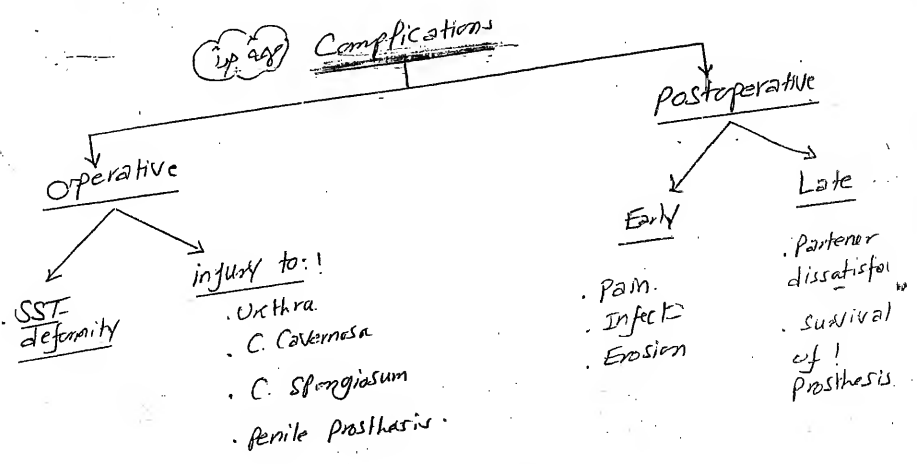 Complications
Operative
Postoperative
SST
deformity
injury to:!
. Urethra.
. C. Cavernosa
. C. Spongiosum
. Penile Prosthesis.
Early
. Pain.
. Infect
. Erosion
Late
. Partener
dissatisfa
. Survival
of !
Prosthesis.